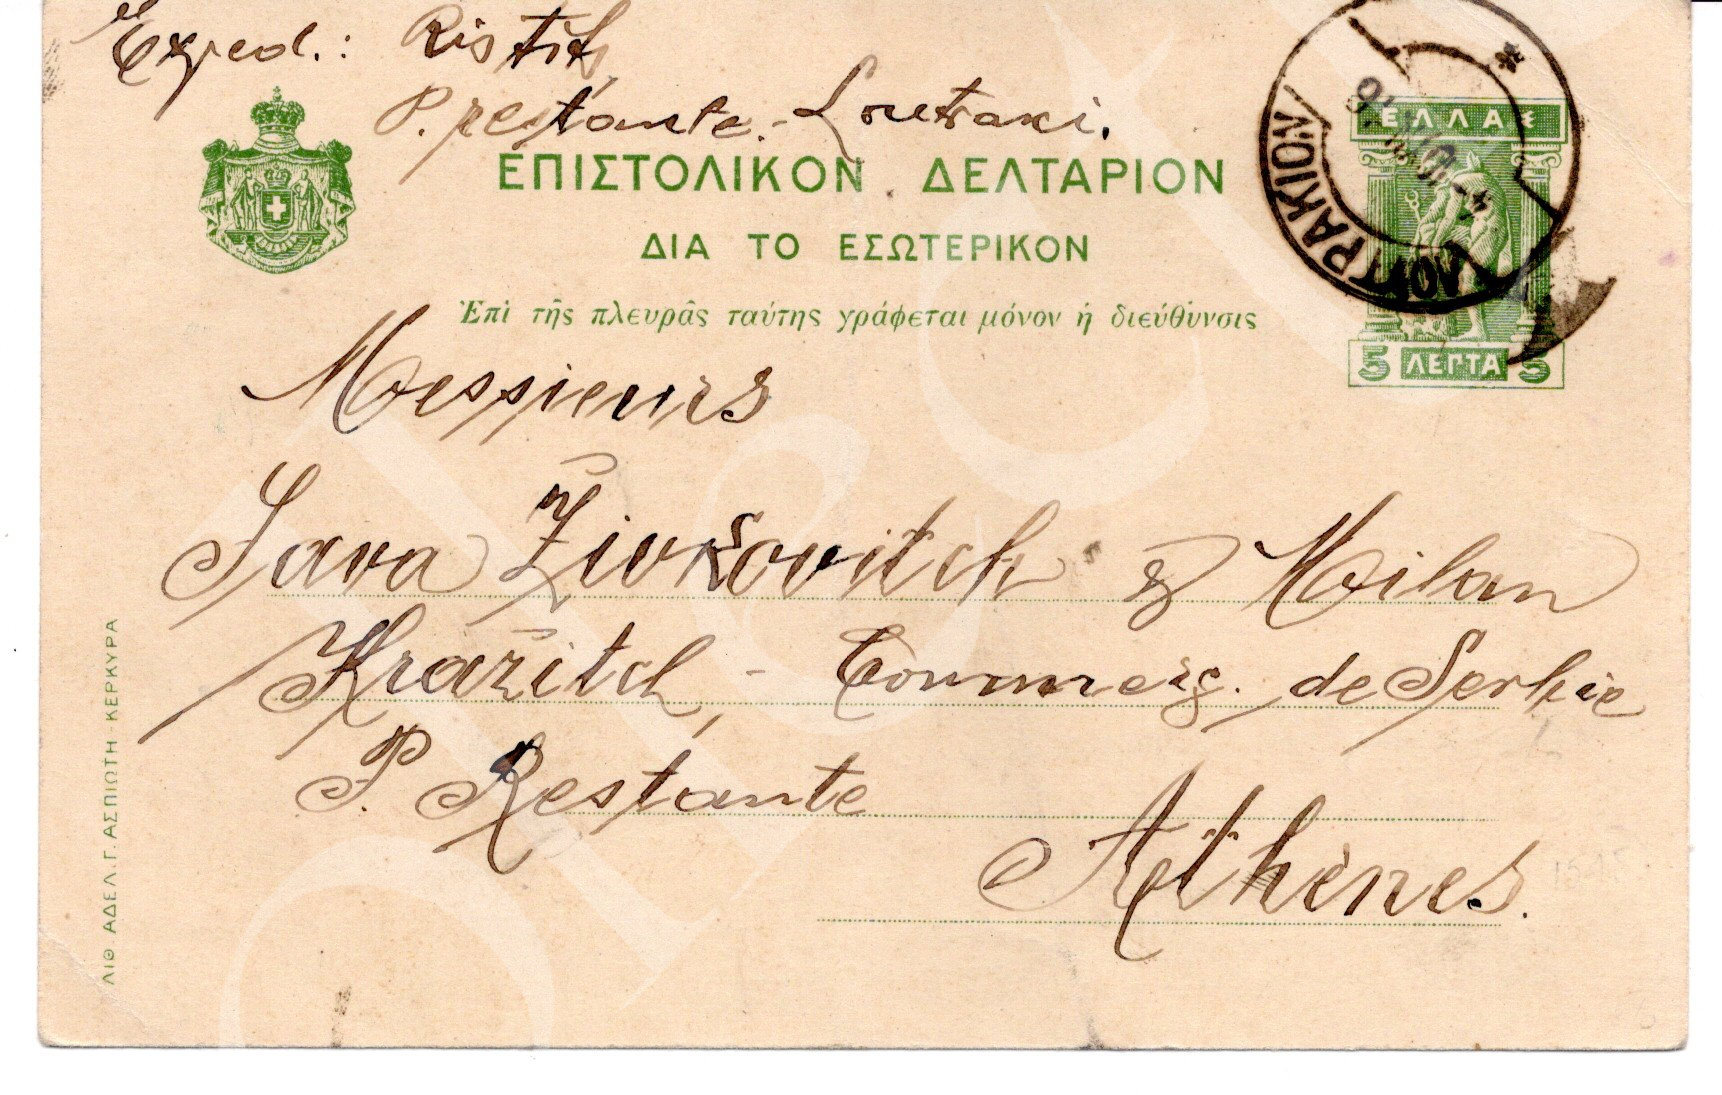 Exped.: Ristitz
P. restante.- Loutraki.
ΕΛΛΑΣ
ΛΟΥΤΡΑΚΙΟΝ
ΕΠΙΣΤΟΛΙΚΟΝ ΔΕΛΤΑΡΙΟΝ
ΔΙΑ ΤΟ ΕΣΩΤΕΡΙΚΟΝ
Ἐπὶ τῆς πλευρᾶς ταύτης γράφεται μόνον ἡ διεύθυνσις
5 ΛΕΠΤΑ 5
Messieurs
Sava Živkovitch & Milan
Kražitch, - Commerç. de Serbie
P. Restante
Athènes.
ΛΙΘ. ΑΔΕΛ. Γ. ΑΣΠΙΩΤΗ - ΚΕΡΚΥΡΑ